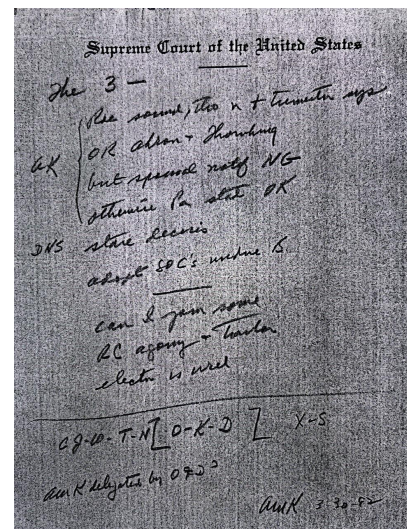 Supreme Court of the United States
The 3 —
Roe sound, tho n + trimester
AK OR Akron + Thornburg
but spousal notif NG
otherwise Pa stat OK
DHS stare decisis
adopt SOC's undue B
can I join some
RC agony +
is well
CJ-W-T-N [O-K-D] X-S
AMK delegated by O & D
AMK 3-30-92